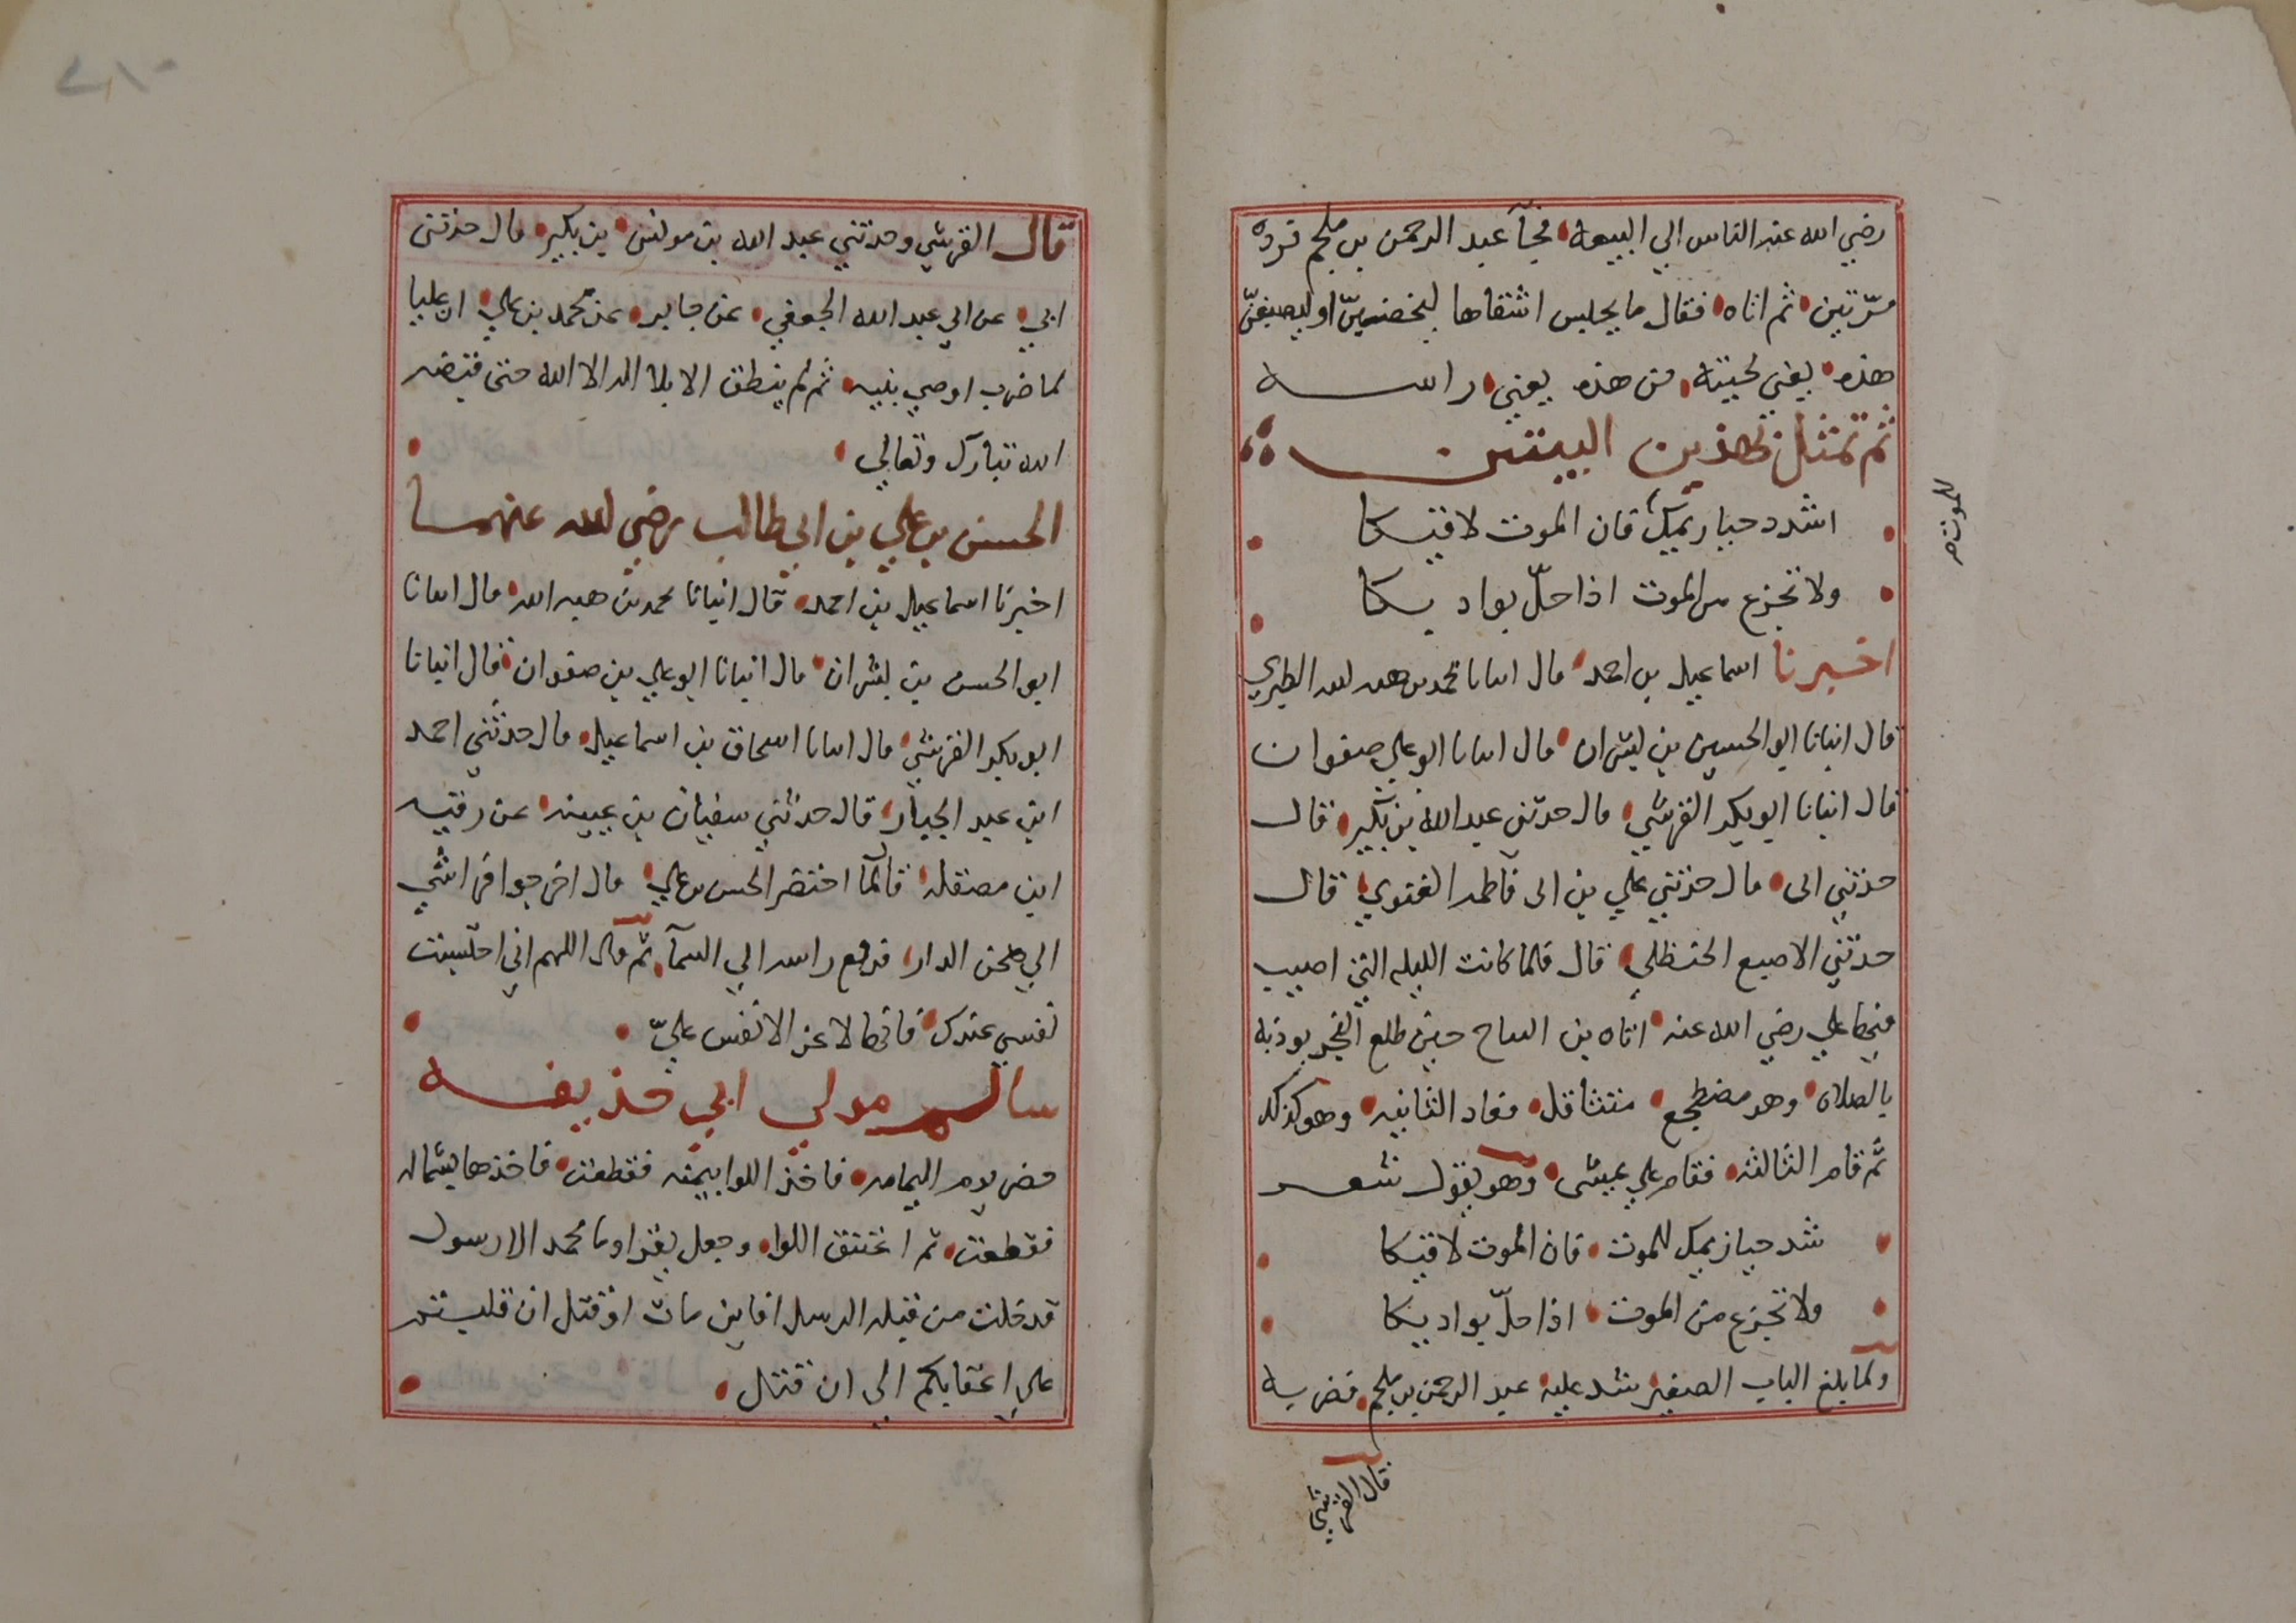 رضي الله عنه الناس الي البيعة فجآ عبد الرحمن بن ملجم فرده
مرّتين ثم اتاه فقال ما يحبس اشقاها ليخضبنّ او ليصبغنّ
هذه يعني لحيته من هذه يعني راسه
ثم تمثل بهذين البيتين
اشدد حيازيمك فان الموت لاقيكا
للموت صح
ولا تجزع من الموت اذا حلّ بواديكا
اخبرنا اسماعيل بن احمد قال انبانا محمد بن هبه الله الطبري
قال انبانا ابو الحسين بن بشران قال انبانا ابو علي صفوان
قال انبانا ابو بكر القرشي قال حدثني عبد الله بن بكير قال
حدثني ابى قال حدثني علي بن ابى فاطمه الغنوي قال
حدثني الاصبع الحنظلي قال فلما كانت الليله التي اصيب
فيها علي رضي الله عنه اتاه بن النباح حين طلع الفجر يوذنه
بالصلاه وهو مضطجع متثاقل فعاد الثانيه وهو كذلك
ثم قام الثالثه فقام علي يمشى وهو يقول شعر
شد حيازيمك للموت فان الموت لاقيكا
ولا تجزع من الموت اذا حلّ بواديكا
ولما بلغ الباب الصغير شد عليه عبد الرحمن بن ملجم فضربه
قال القرشي
قال القرشي وحدثني عبد الله بن يونس بن بكير قال حدثنى
ابي عن ابي عبد الله الجعفي عن جابر عن محمد بن علي ان عليا
لما ضرب اوصي بنيه ثم لم ينطق الا بلا اله الا الله حتى قبضه
الله تبارك وتعالي
الحسن بن علي بن ابي طالب رضي الله عنهما
اخبرنا اسماعيل بن احمد قال انبانا محمد بن هبه الله قال انبانا
ابو الحسن بن بشران قال انبانا ابو علي بن صفوان قال انبانا
ابو بكر القرشي قال انبانا اسحاق بن اسماعيل قال حدثني احمد
ابن عبد الجبار قال حدثني سفيان بن عيينه عن رقبه
ابن مصقله قال لمّا احتضر الحسن بن علي قال اخرجوا فراشي
الي صحن الدار فرفع راسه الي السمآ ثم قال اللهم اني احتسبت
نفسي عندك فانها لاعز الانفس عليّ
سالم مولي ابي حذيفه
حضر يوم اليمامه فاخذ اللوا بيمينه فقطعت فاخذها بشماله
فقطعت ثم اعتنق اللوا وجعل يقرا وما محمد الا رسول
قد خلت من قبله الرسل افاين مات او قتل انقلبتم
علي اعقابكم الى ان قتل